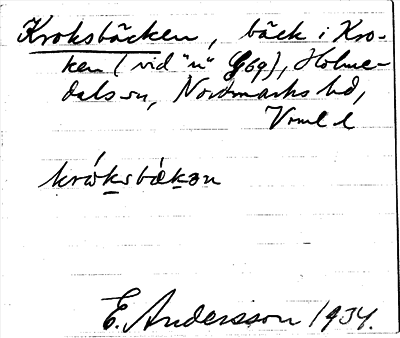 Kroksbäcken, bäck i Kro-
ken (vid "n" G69), Holme-
dals sn, Nordmarks hd,
Vrml l
króksbäkən
E. Andersson 1934.